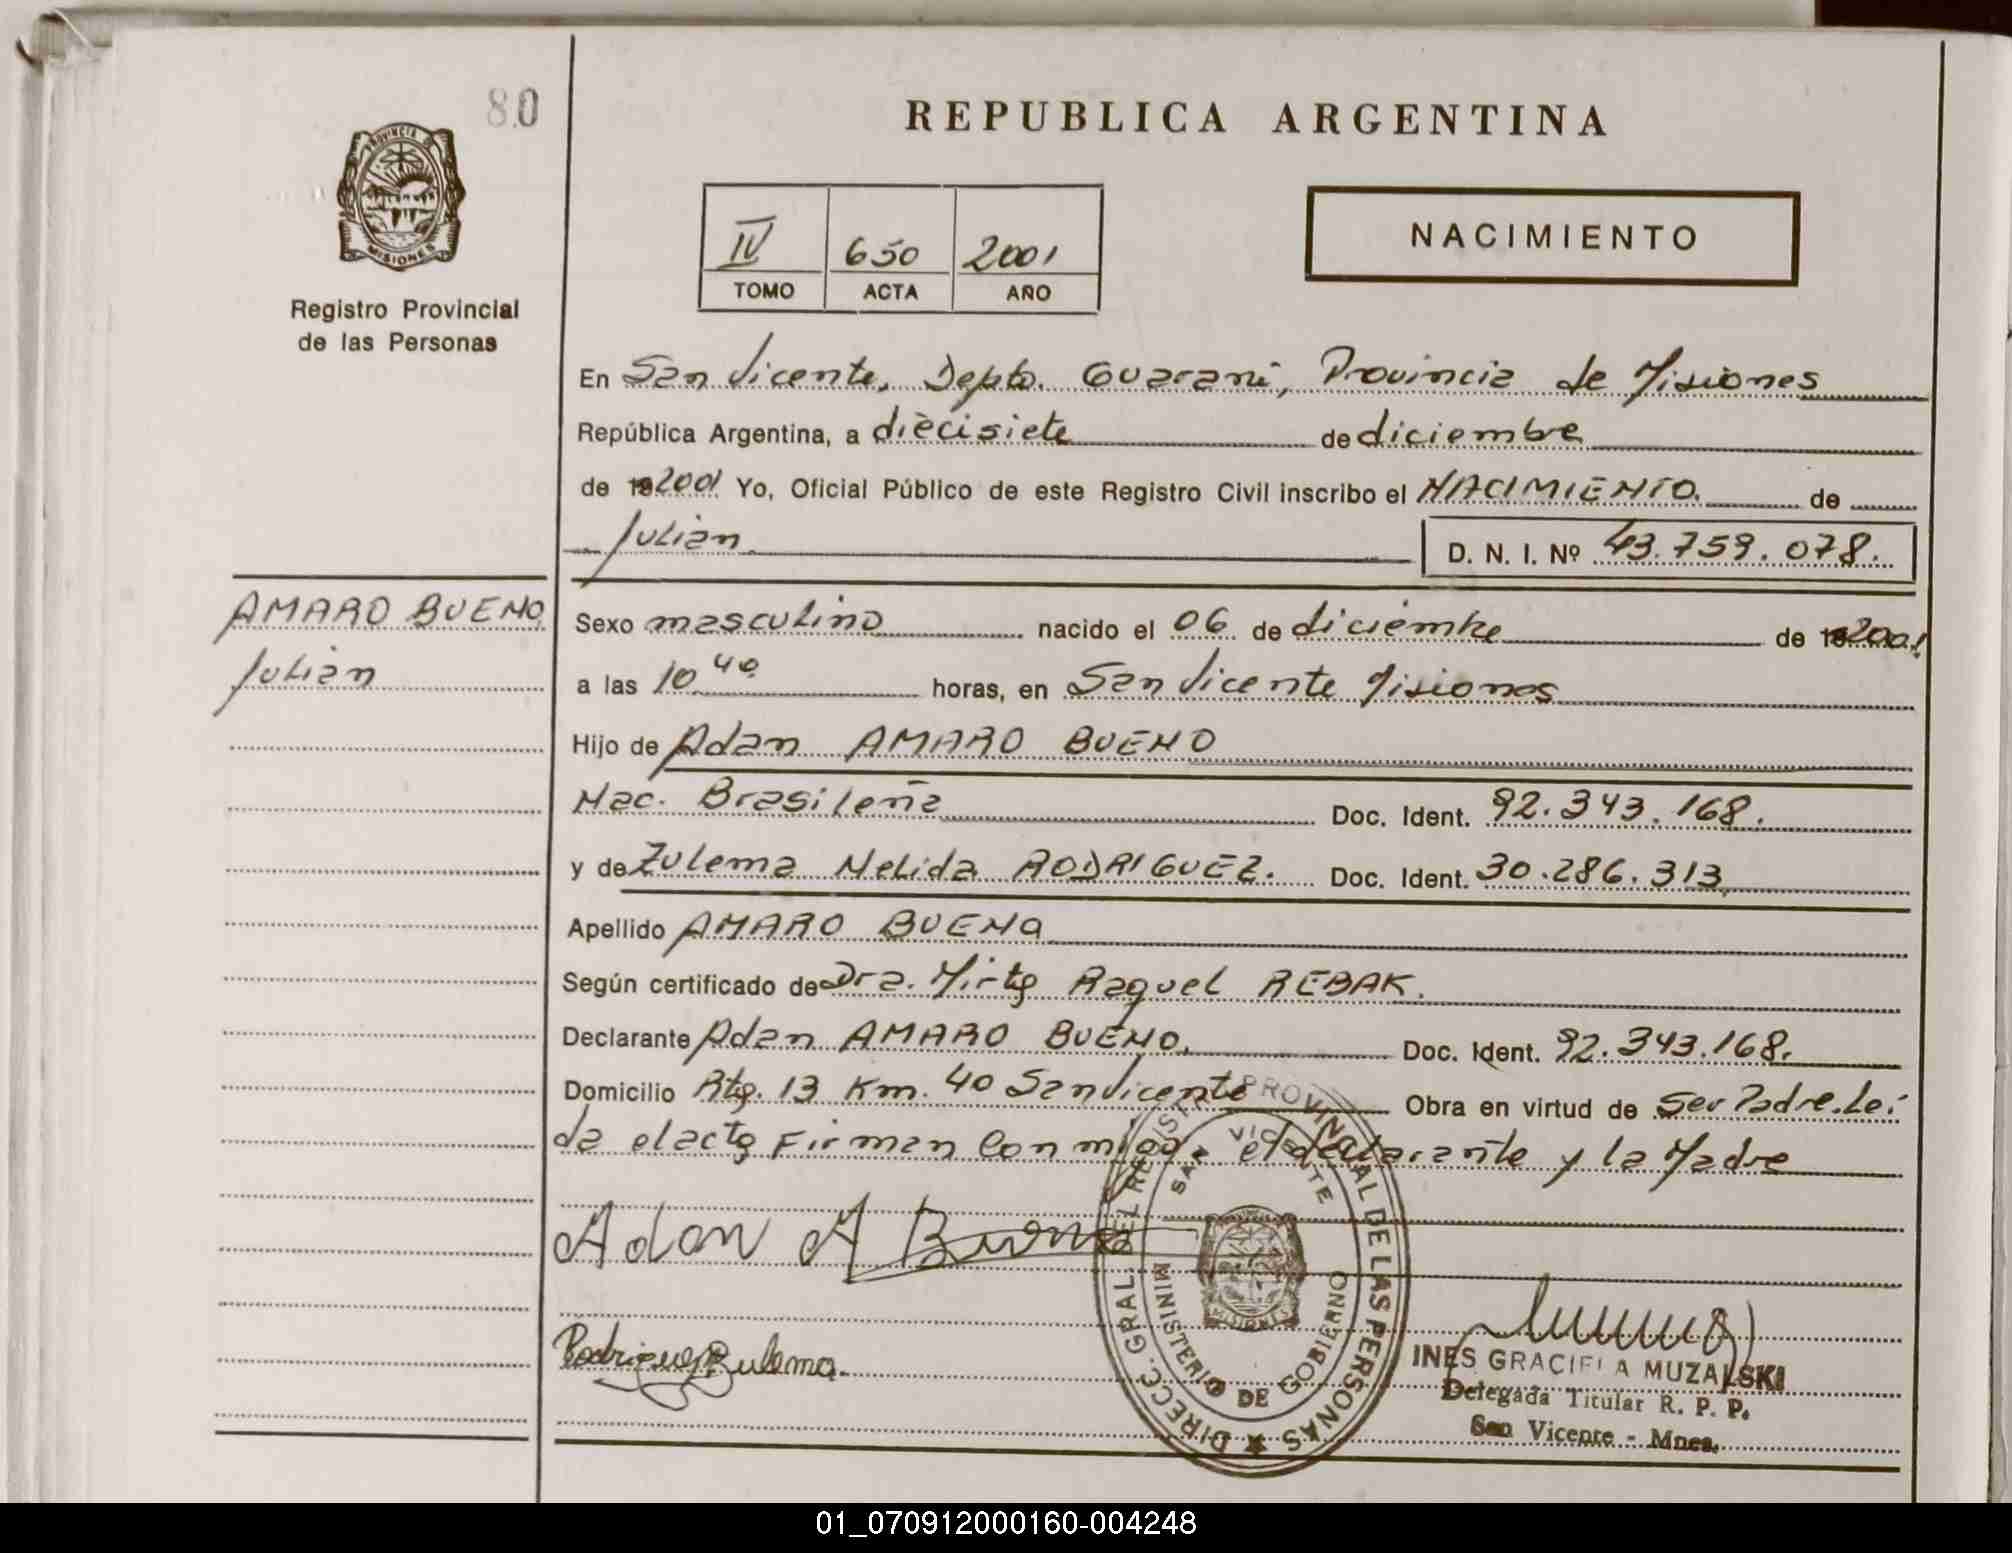 80
REPUBLICA ARGENTINA
PROVINCIA D
MISIONES
Registro Provincial
de las Personas
IV 650 2001
TOMO ACTA AÑO
NACIMIENTO
En San Vicente, Depto. Guarani, Provincia de Misiones
República Argentina, a diecisiete de diciembre
de 19 2001 Yo, Oficial Público de este Registro Civil inscribo el NACIMIENTO. de
Julian D. N. I. Nº 43.759.078.
AMARO BUENO
Julian
Sexo masculino nacido el 06 de diciembre de 19 2001
a las 10 40 horas, en San Vicente Misiones
Hijo de Adan AMARO BUENO
Nac. Brasileña Doc. Ident. 92.343.168.
y de Zulema Nelida RODRIGUEZ. Doc. Ident. 30.286.313
Apellido AMARO BUENO
Según certificado de Dra. Mirta Raquel REBAK.
Declarante Adan AMARO BUENO. Doc. Ident. 92.343.168.
Domicilio Rta. 13 Km. 40 San Vicente Obra en virtud de Ser Padre. Lei
da el acta Firman Con migo el declarante y la Madre
Adan A Bueno
Rodriguez Zulema.
DIRECC. GRAL. DEL REGISTRO PROVINCIAL DE LAS PERSONAS
SAN VICENTE
MISIONES
MINISTERIO DE GOBIERNO
INES GRACIELA MUZALSKI
Delegada Titular R. P. P.
San Vicente - Mnes.
01_070912000160-004248